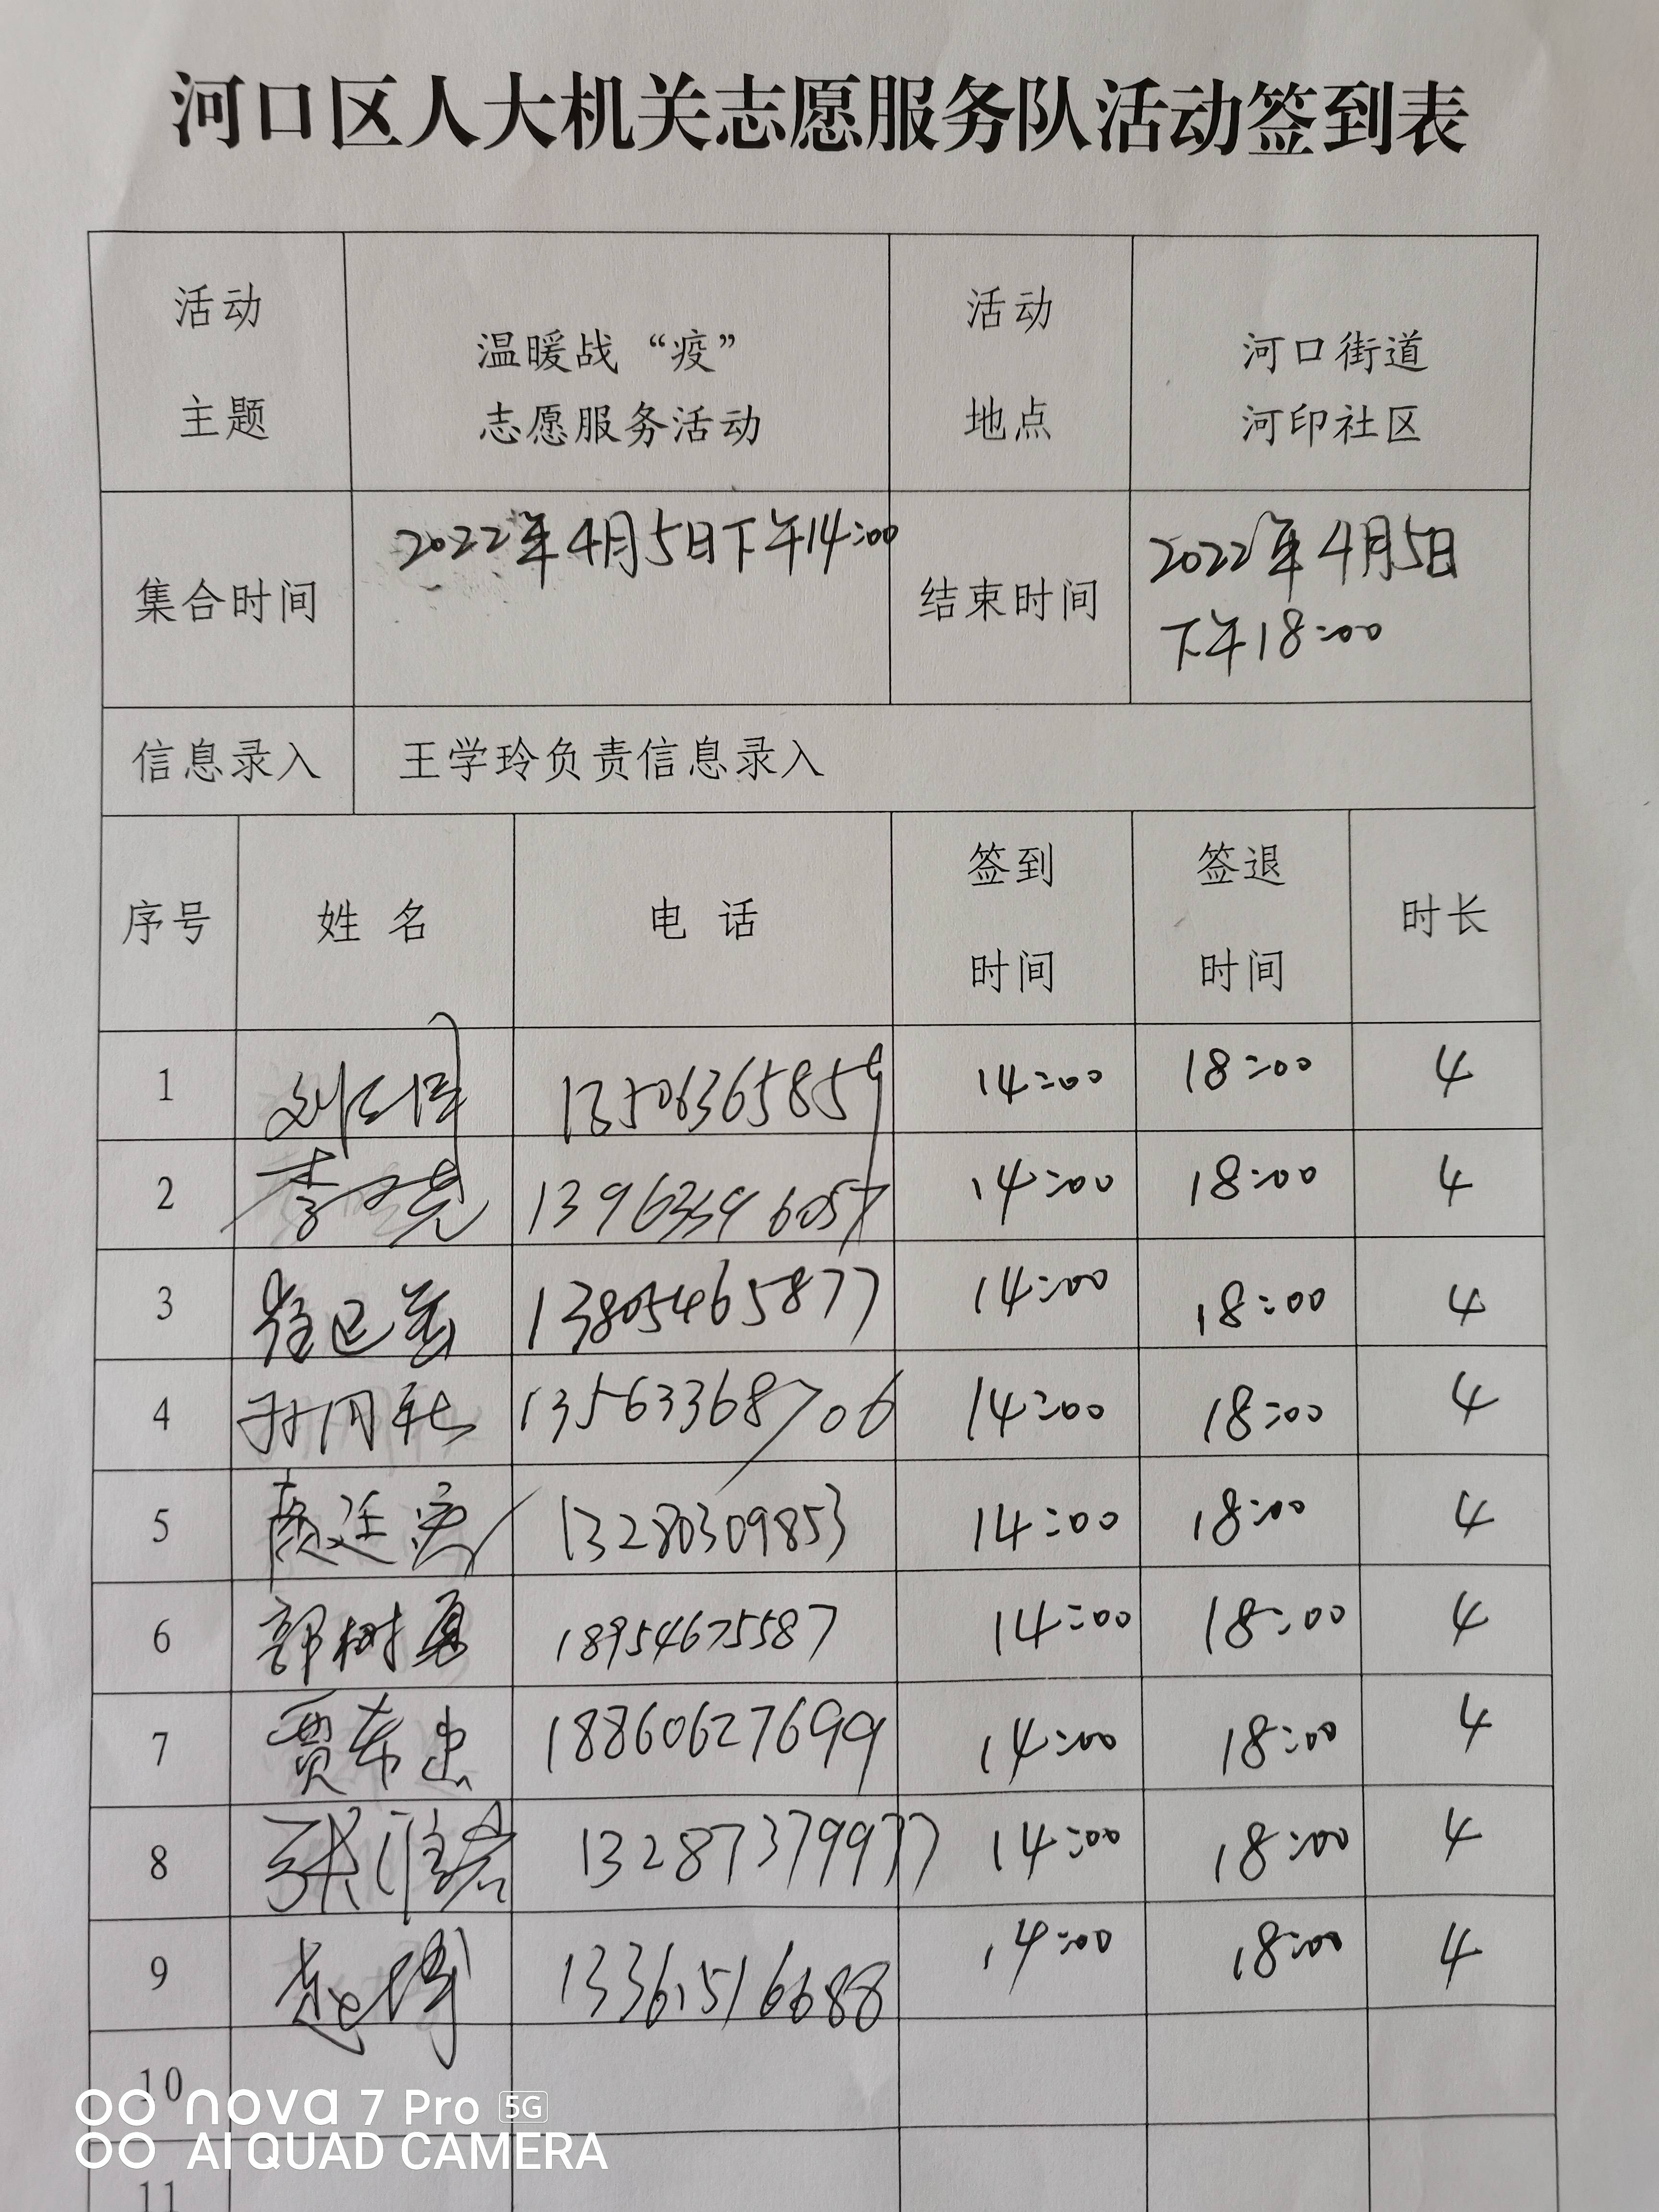 河口区人大机关志愿服务队活动签到表
活动主题
温暖战“疫”
志愿服务活动
活动地点
河口街道
河印社区
集合时间
2022年4月5日下午14:00
结束时间
2022年4月5日
下午18:00
信息录入
王学玲负责信息录入
序号 姓名 电话 签到时间 签退时间 时长
1 13506365859 14:00 18:00 4
2 14:00 18:00 4
3 13805465877 14:00 18:00 4
4 13563368706 14:00 18:00 4
5 13280309853 14:00 18:00 4
6 郭树勇 18954675587 14:00 18:00 4
7 贾希忠 18860627699 14:00 18:00 4
8 13287379977 14:00 18:00 4
9 赵博 13361516688 14:00 18:00 4
10
11
nova 7 Pro 5G
AI QUAD CAMERA